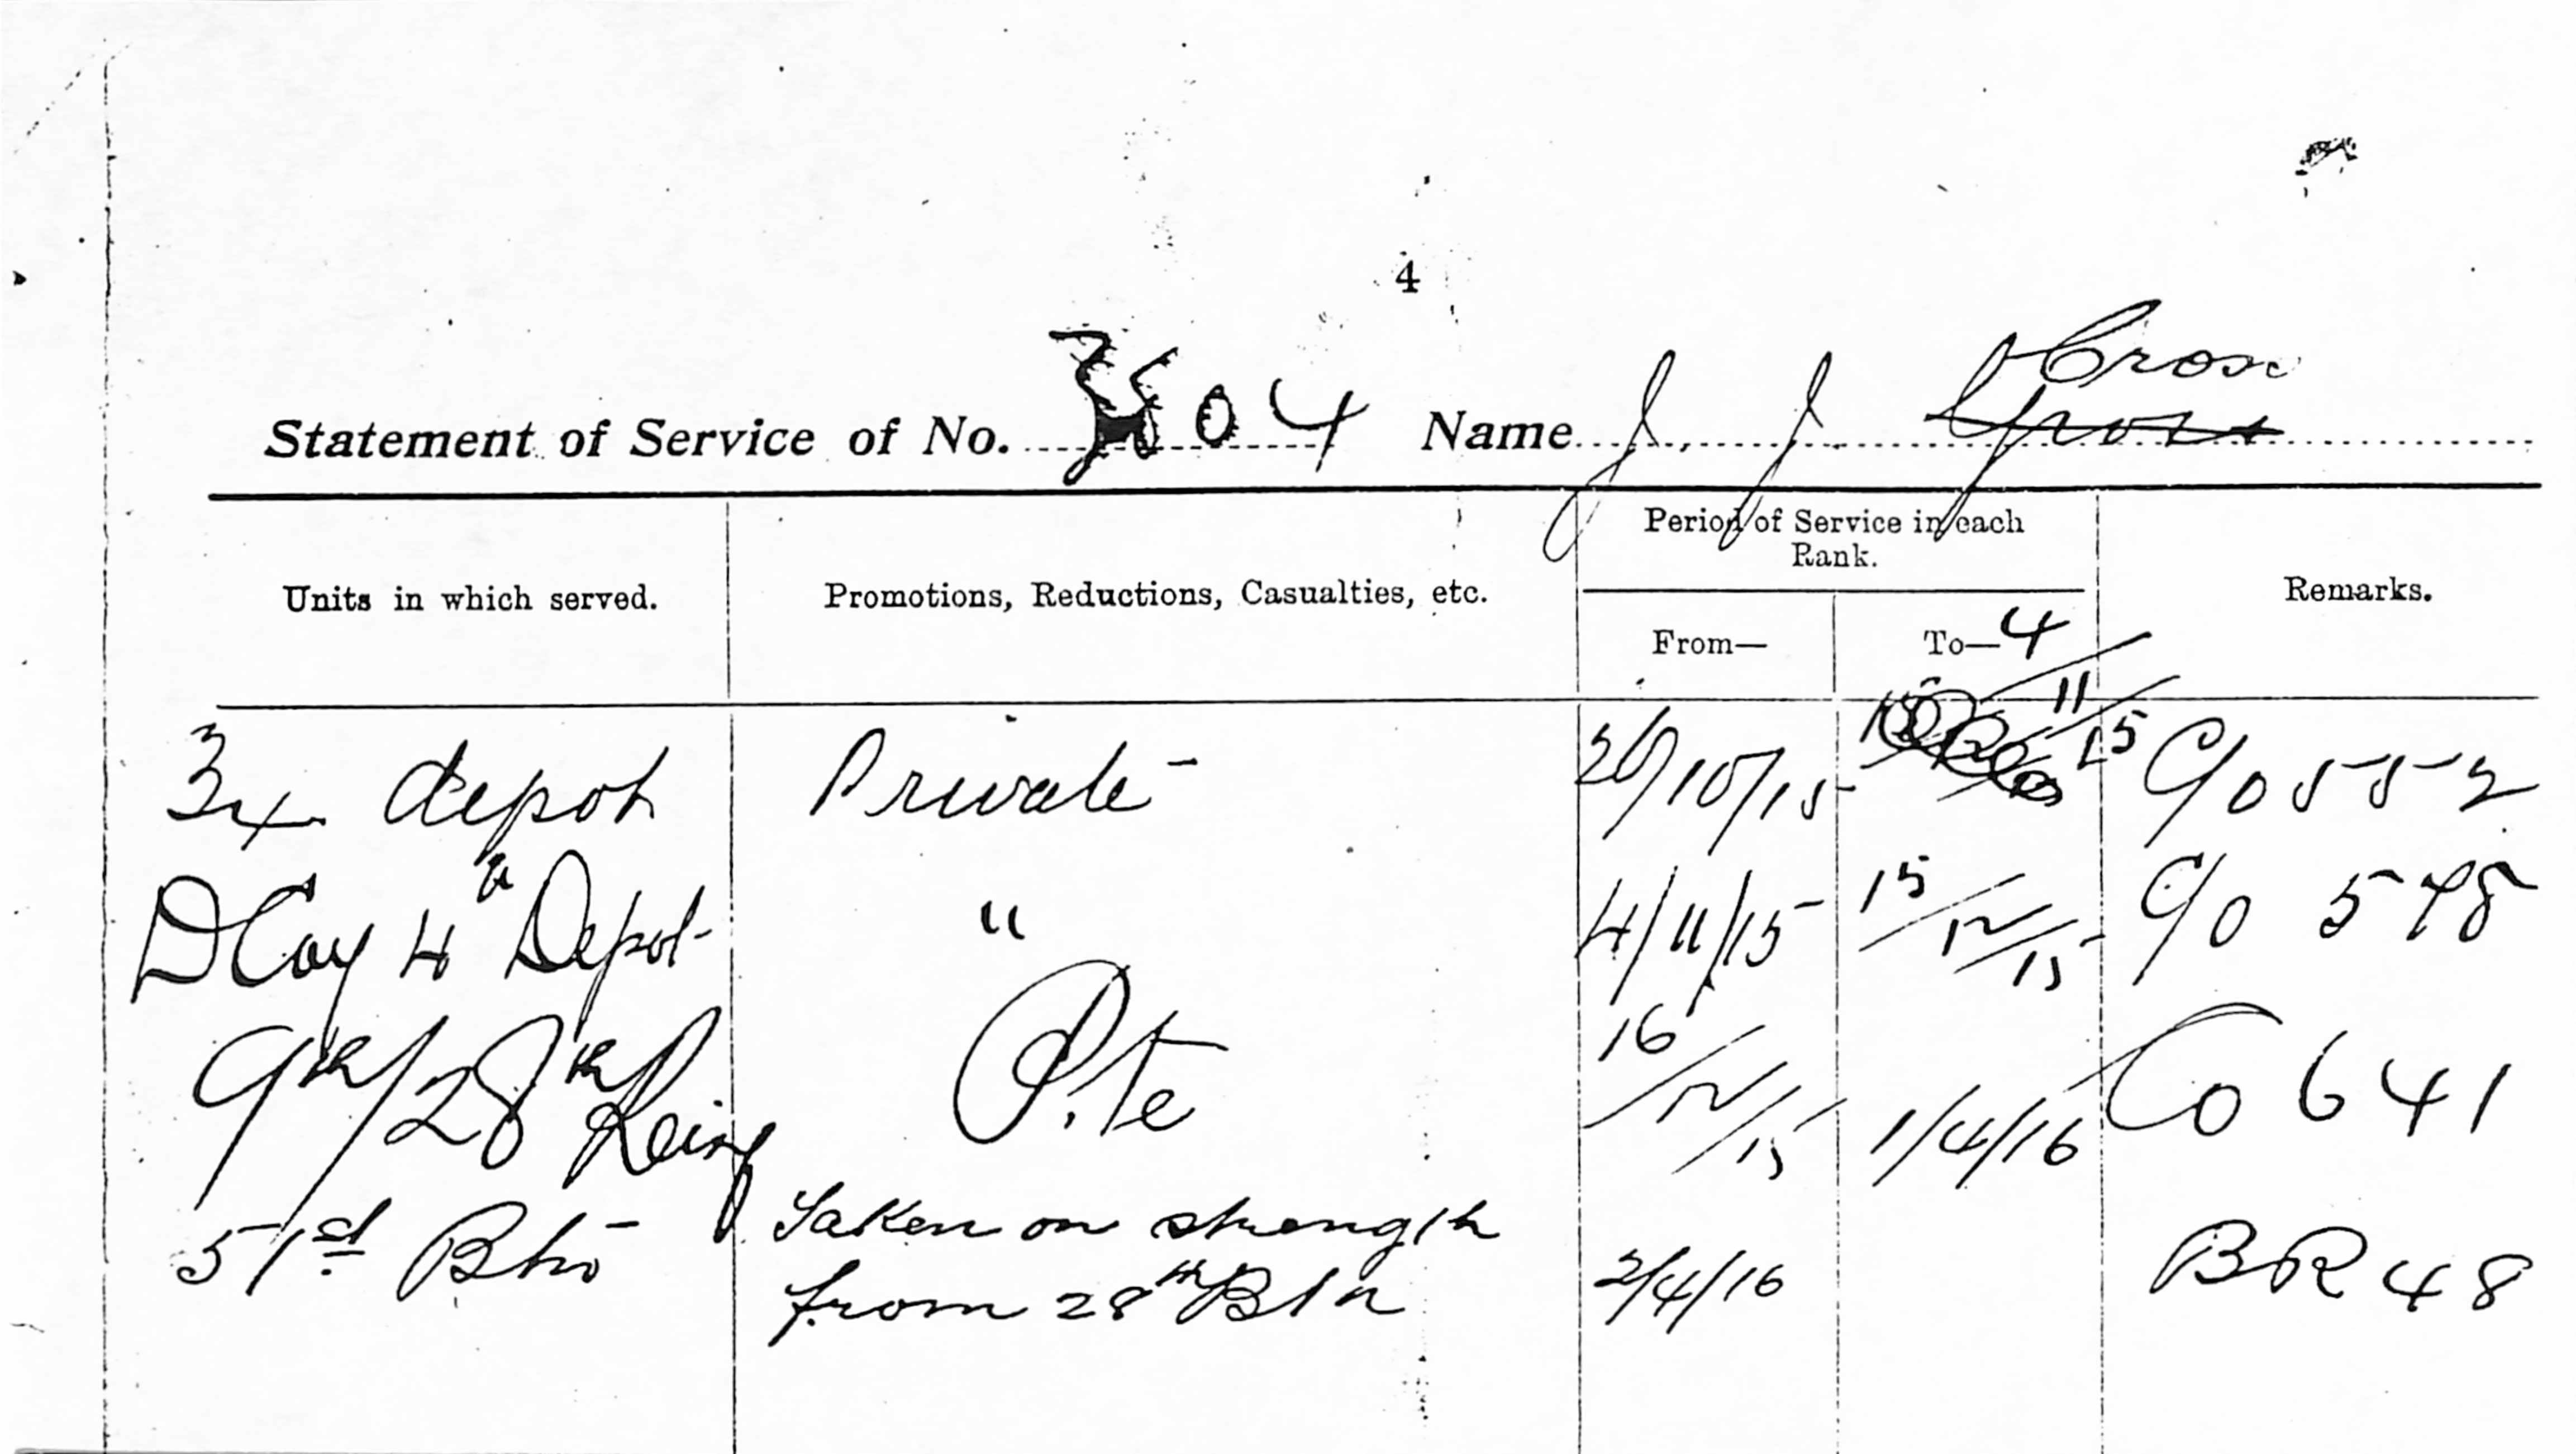 4
Statement of Service of No. 3504 Name J. J. Cron
Units in which served. Promotions, Reductions, Casualties, etc. Period of Service in each Rank. Remarks.
From— To—
depot Private 20/10/15 4/11/15 C/o 552
D Coy 4th Depot " 4/11/15 15/12/15 C/o 548
9th/28th Reinf Pte 16/12/15 1/4/16 Co 641
51st Btn Taken on strength from 28th Btn 2/4/16 BR 48